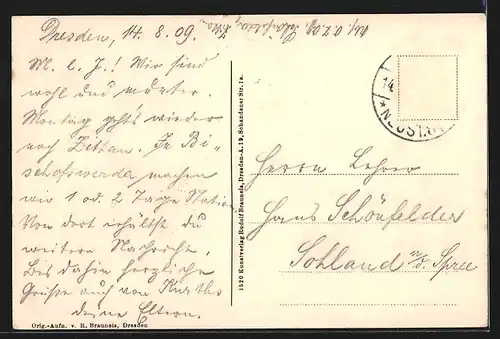 Dresden, 14. 8. 09.
M. l. J.! Wir sind
wohl und munter.
Montag geht's wieder
nach Zittau. In Bi-
schofswerda machen
wir 1 od. 2 Tage Station
Von dort erhältst du
weitere Nachricht.
Bis dahin herzliche
Grüße auch von Kurths
deine Eltern.
Orig.-Aufn. v. R. Brauneis, Dresden
1520 Kunstverlag Rudolf Brauneis, Dresden-A. 19, Schandauer Str. 1a.
14.
*NEUST
Herrn Lehrer
Hans Schönfelder
Sohland a/d. Spree